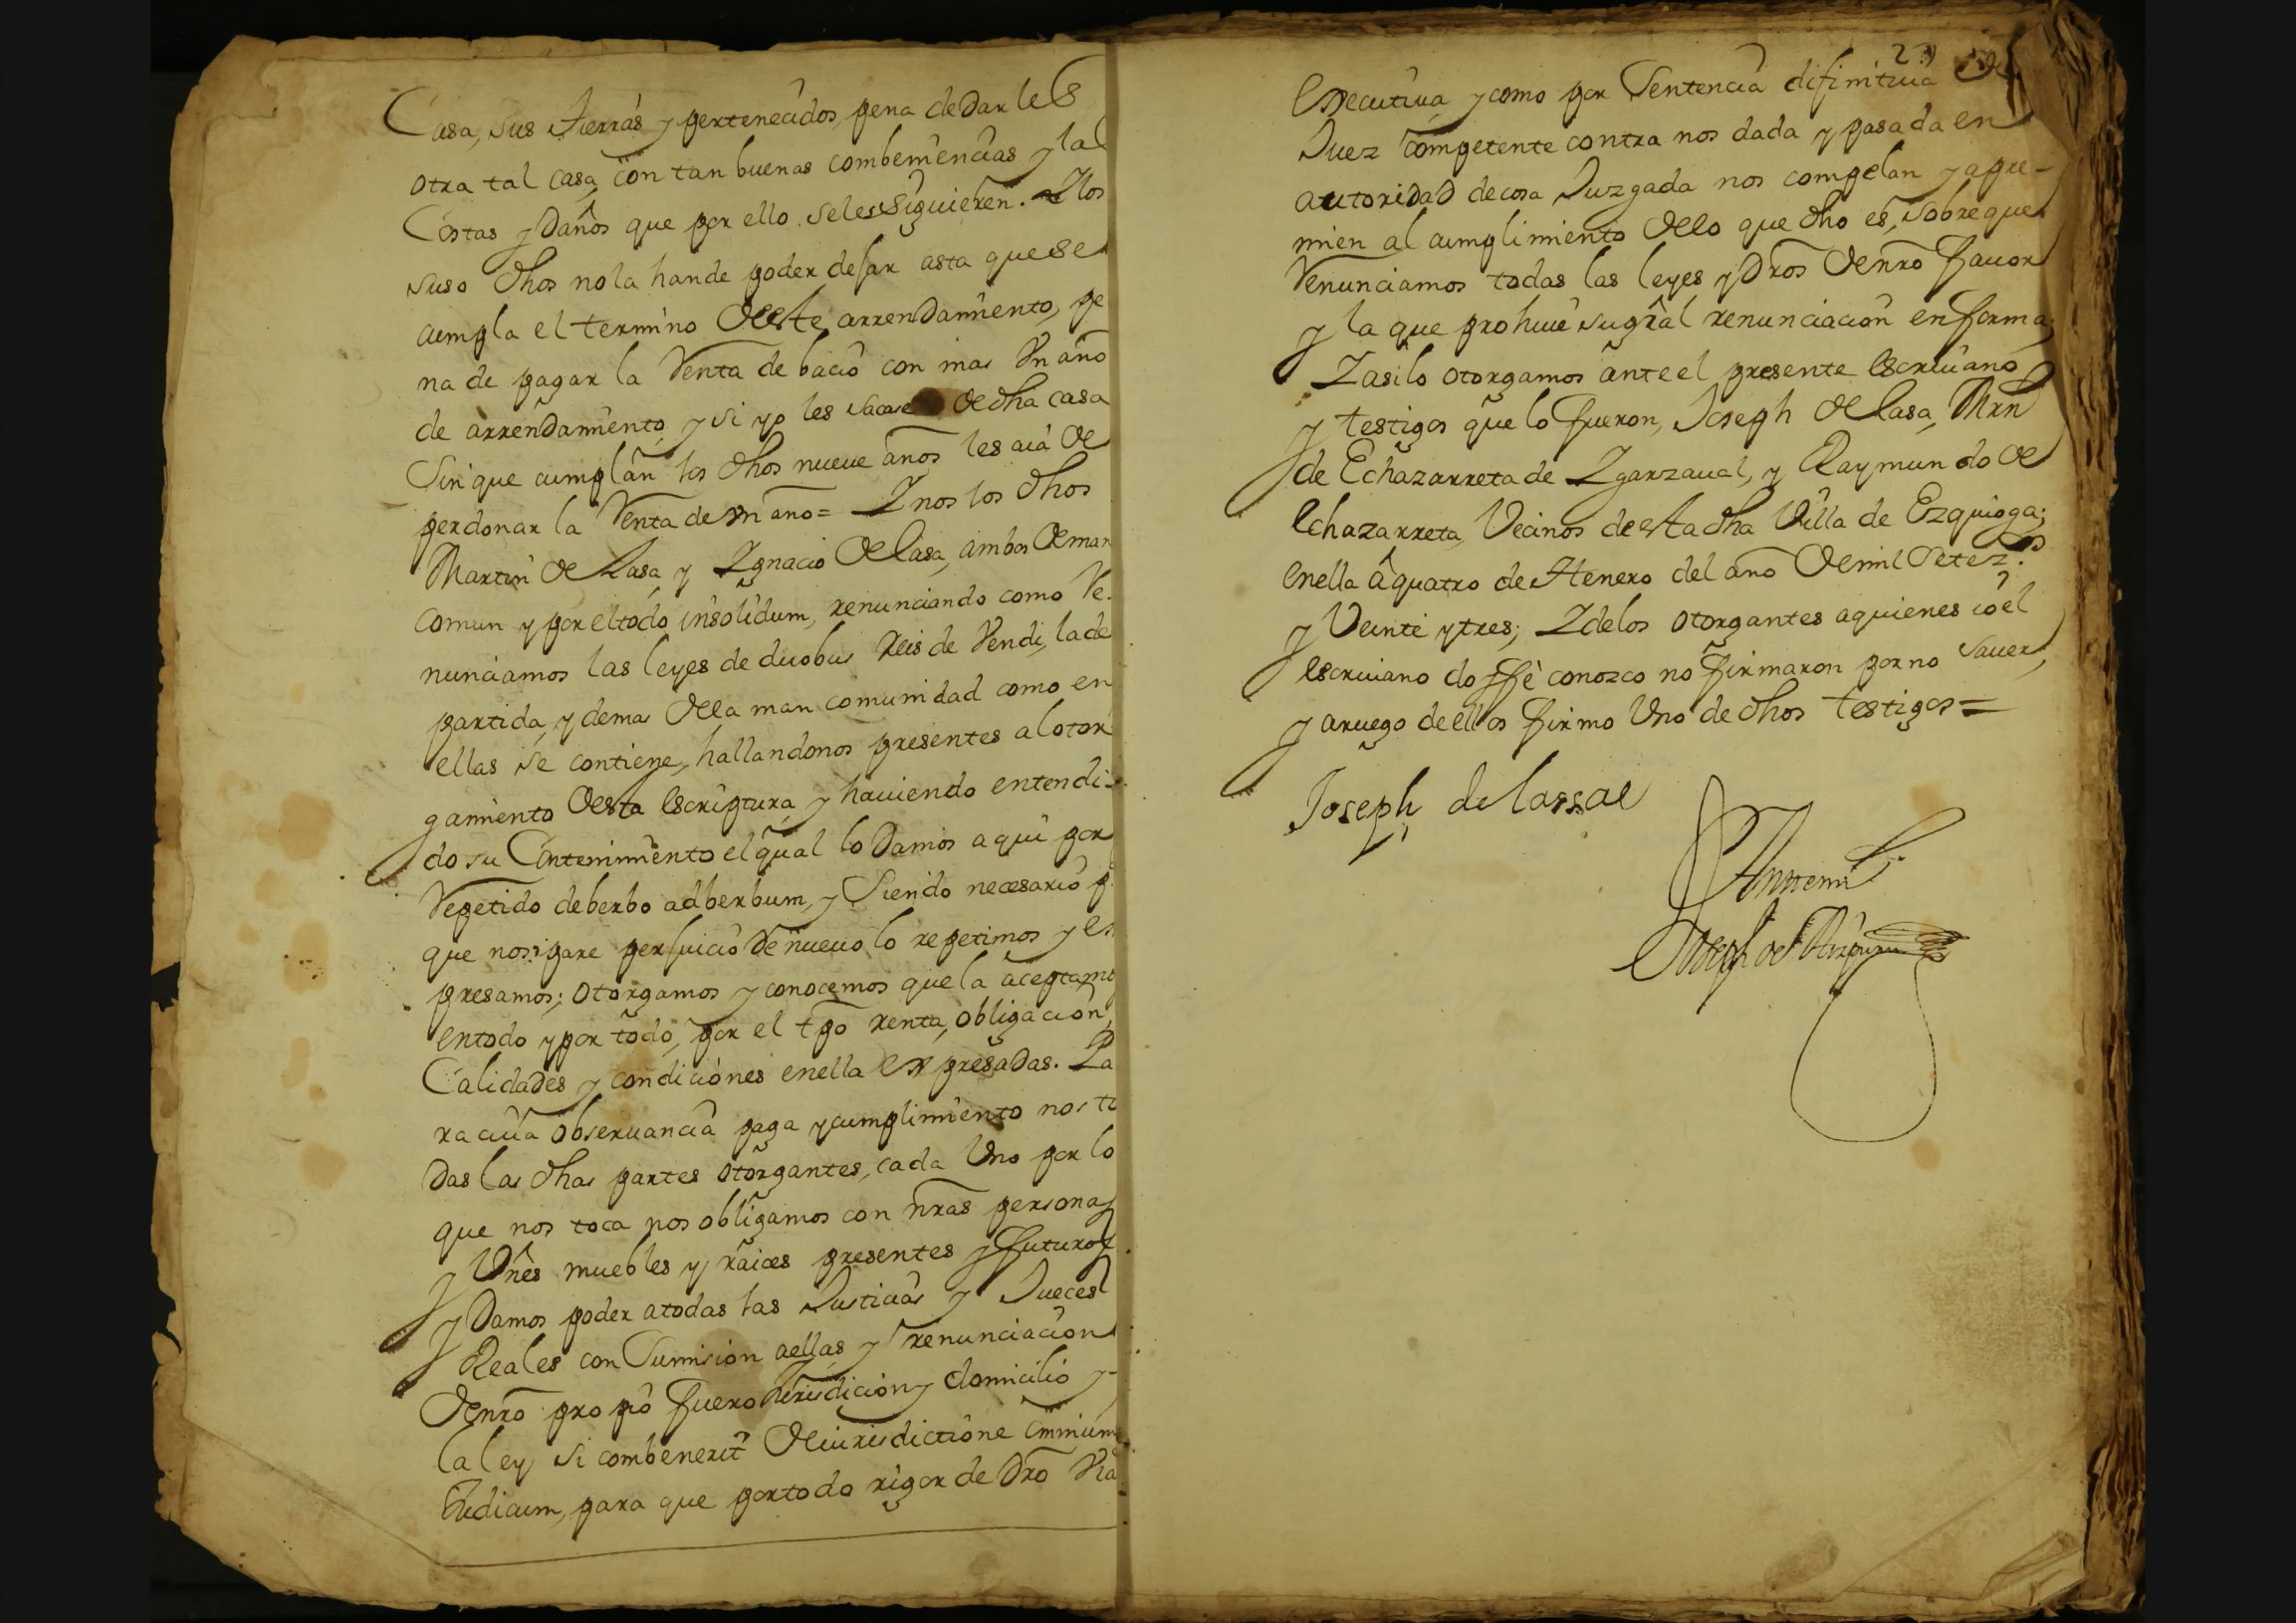 Casa, sus tierras y pertenecidos, pena de Dar les
otra tal casa, con tan buenas combeniencias y las
Costas y Daños que por ello se les Siguieren. Y los
suso dhos no la han de poder dejar asta que se
cumpla el termino deste arrendamiento, pe
na de pagar la Renta de bacio con mas Vn año
de arrendamiento, y si yo les sacase de dha casa
Sin que cumplan los dhos nueue años les aia de
perdonar la Renta de Vn año = Y nos los dhos
Martin de Lasa, y Ygnacio de lasa, ambos de man
comun y por el todo insolidum, renunciando como Re-
nunciamos las leyes de duobus Reis de Vendi, la de
partida, y demas de la man comunidad como en
ellas se contiene, hallandonos presentes al otor
gamiento desta escriptura, y hauiendo entendi-
do su Contenimiento el qual lo Damos aqui por
Repetido de berbo ad berbum, y Siendo necesario p
que nos pare perjuicio de nueuo lo repetimos y es
presamos; otorgamos y conocemos que la aceptamo
en todo y por todo, por el tpo renta, obligacion,
Calidades y condiciones en ella expresadas. Pa
ra cuia obseruancia paga y cumplimiento nos to
das las dhas partes otorgantes, cada Uno por lo
que nos toca nos obligamos con nras personas
y Vnes muebles y raices presentes y futuros
y Damos poder a todas las Justicias y Jueces
Reales con Sumision a ellas y renunciacion
de nro propio fuero Jurisdicion y domicilio y
la ley si combenerit de iurisdictione omnium
Iudicum, para que por todo rigor de Dro Via
23
executiua, y como por Sentencia difinitiua de
Juez competente contra nos dada y pasada en
autoridad de cosa Juzgada nos compelan y apre-
mien al cumplimiento de lo que dho es, sobre que
Renunciamos todas las leyes y Dros de nro fauor
y la que prohiue su gral renunciacion en forma;
Y asi lo otorgamos ante el presente escriuano
y testigos que lo fueron, Joseph de lasa, Mrn
de Echazarreta de Ygarzaual, y Raymundo de
echazarreta, Vecinos desta dha Villa de Ezquioga;
en ella a quatro de Henero del año de mil Setezos
y Veinte y tres; Y de los otorgantes a quienes io el
escriuano doy ffe conozco no firmaron por no sauer,
y a ruego de ellos firmo Uno de dhos testigos =
Joseph de lassa
Antemi
Joseph de